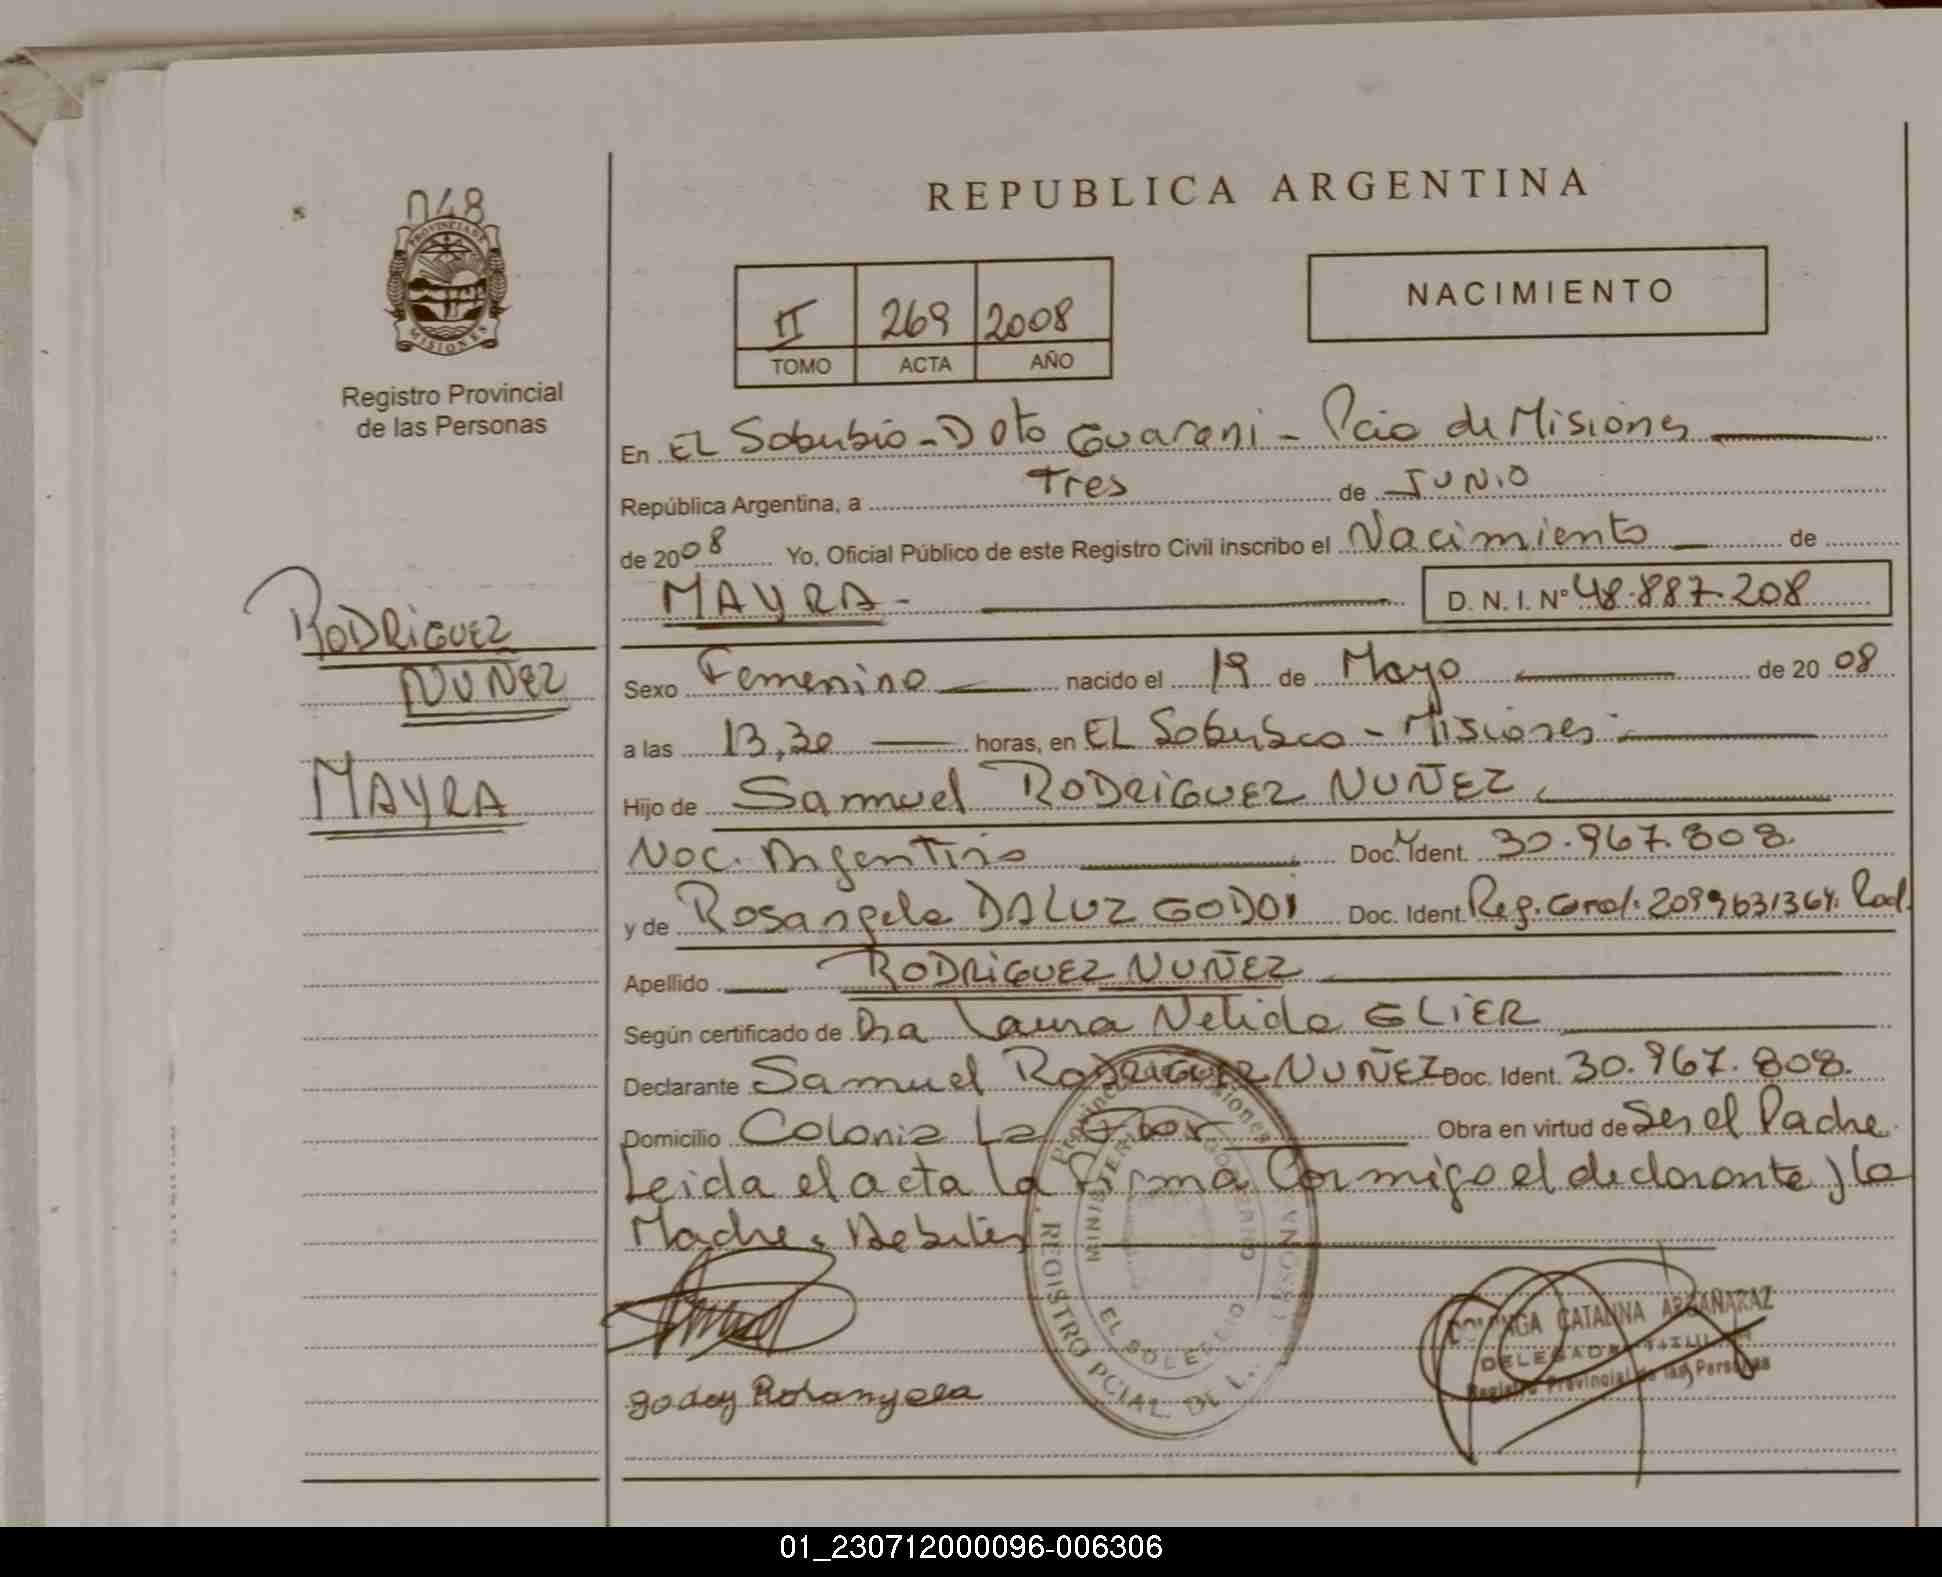 048
PROVINCIA DE
MISIONES
Registro Provincial
de las Personas
RODRIGUEZ
NUÑEZ
MAYRA
REPUBLICA ARGENTINA
II 269 2008
TOMO ACTA AÑO
NACIMIENTO
En EL Soberbio - Dpto Guarani - Pcia de Misiones
República Argentina, a Tres de JUNIO
de 2008 Yo, Oficial Público de este Registro Civil inscribo el Nacimiento de
MAYRA - D. N. I. Nº 48.887.208
Sexo Femenino nacido el 19 de Mayo de 2008
a las 13,30 horas, en EL Soberbio - Misiones
Hijo de Samuel RODRIGUEZ NUÑEZ
Nac. Argentino Doc. Ident. 30.967.808.
y de Rosangela DALUZ GODOI Doc. Ident. Reg. Gral. 2099631364. Rad.
Apellido RODRIGUEZ NUÑEZ
Según certificado de Dra Laura Nelida GLIER
Declarante Samuel RODRIGUEZ NUÑEZ Doc. Ident. 30.967.808.
Domicilio Colonia La Flor Obra en virtud de Ser el Padre
Leida el acta la firma Conmigo el declarante y la
Madre.
CATALINA ARGAÑARAZ
DELEGADA TITULAR
Registro Provincial de las Personas
godoy Rosangela
REGISTRO PCIAL. DE L.
EL SOBERBIO
01_230712000096-006306